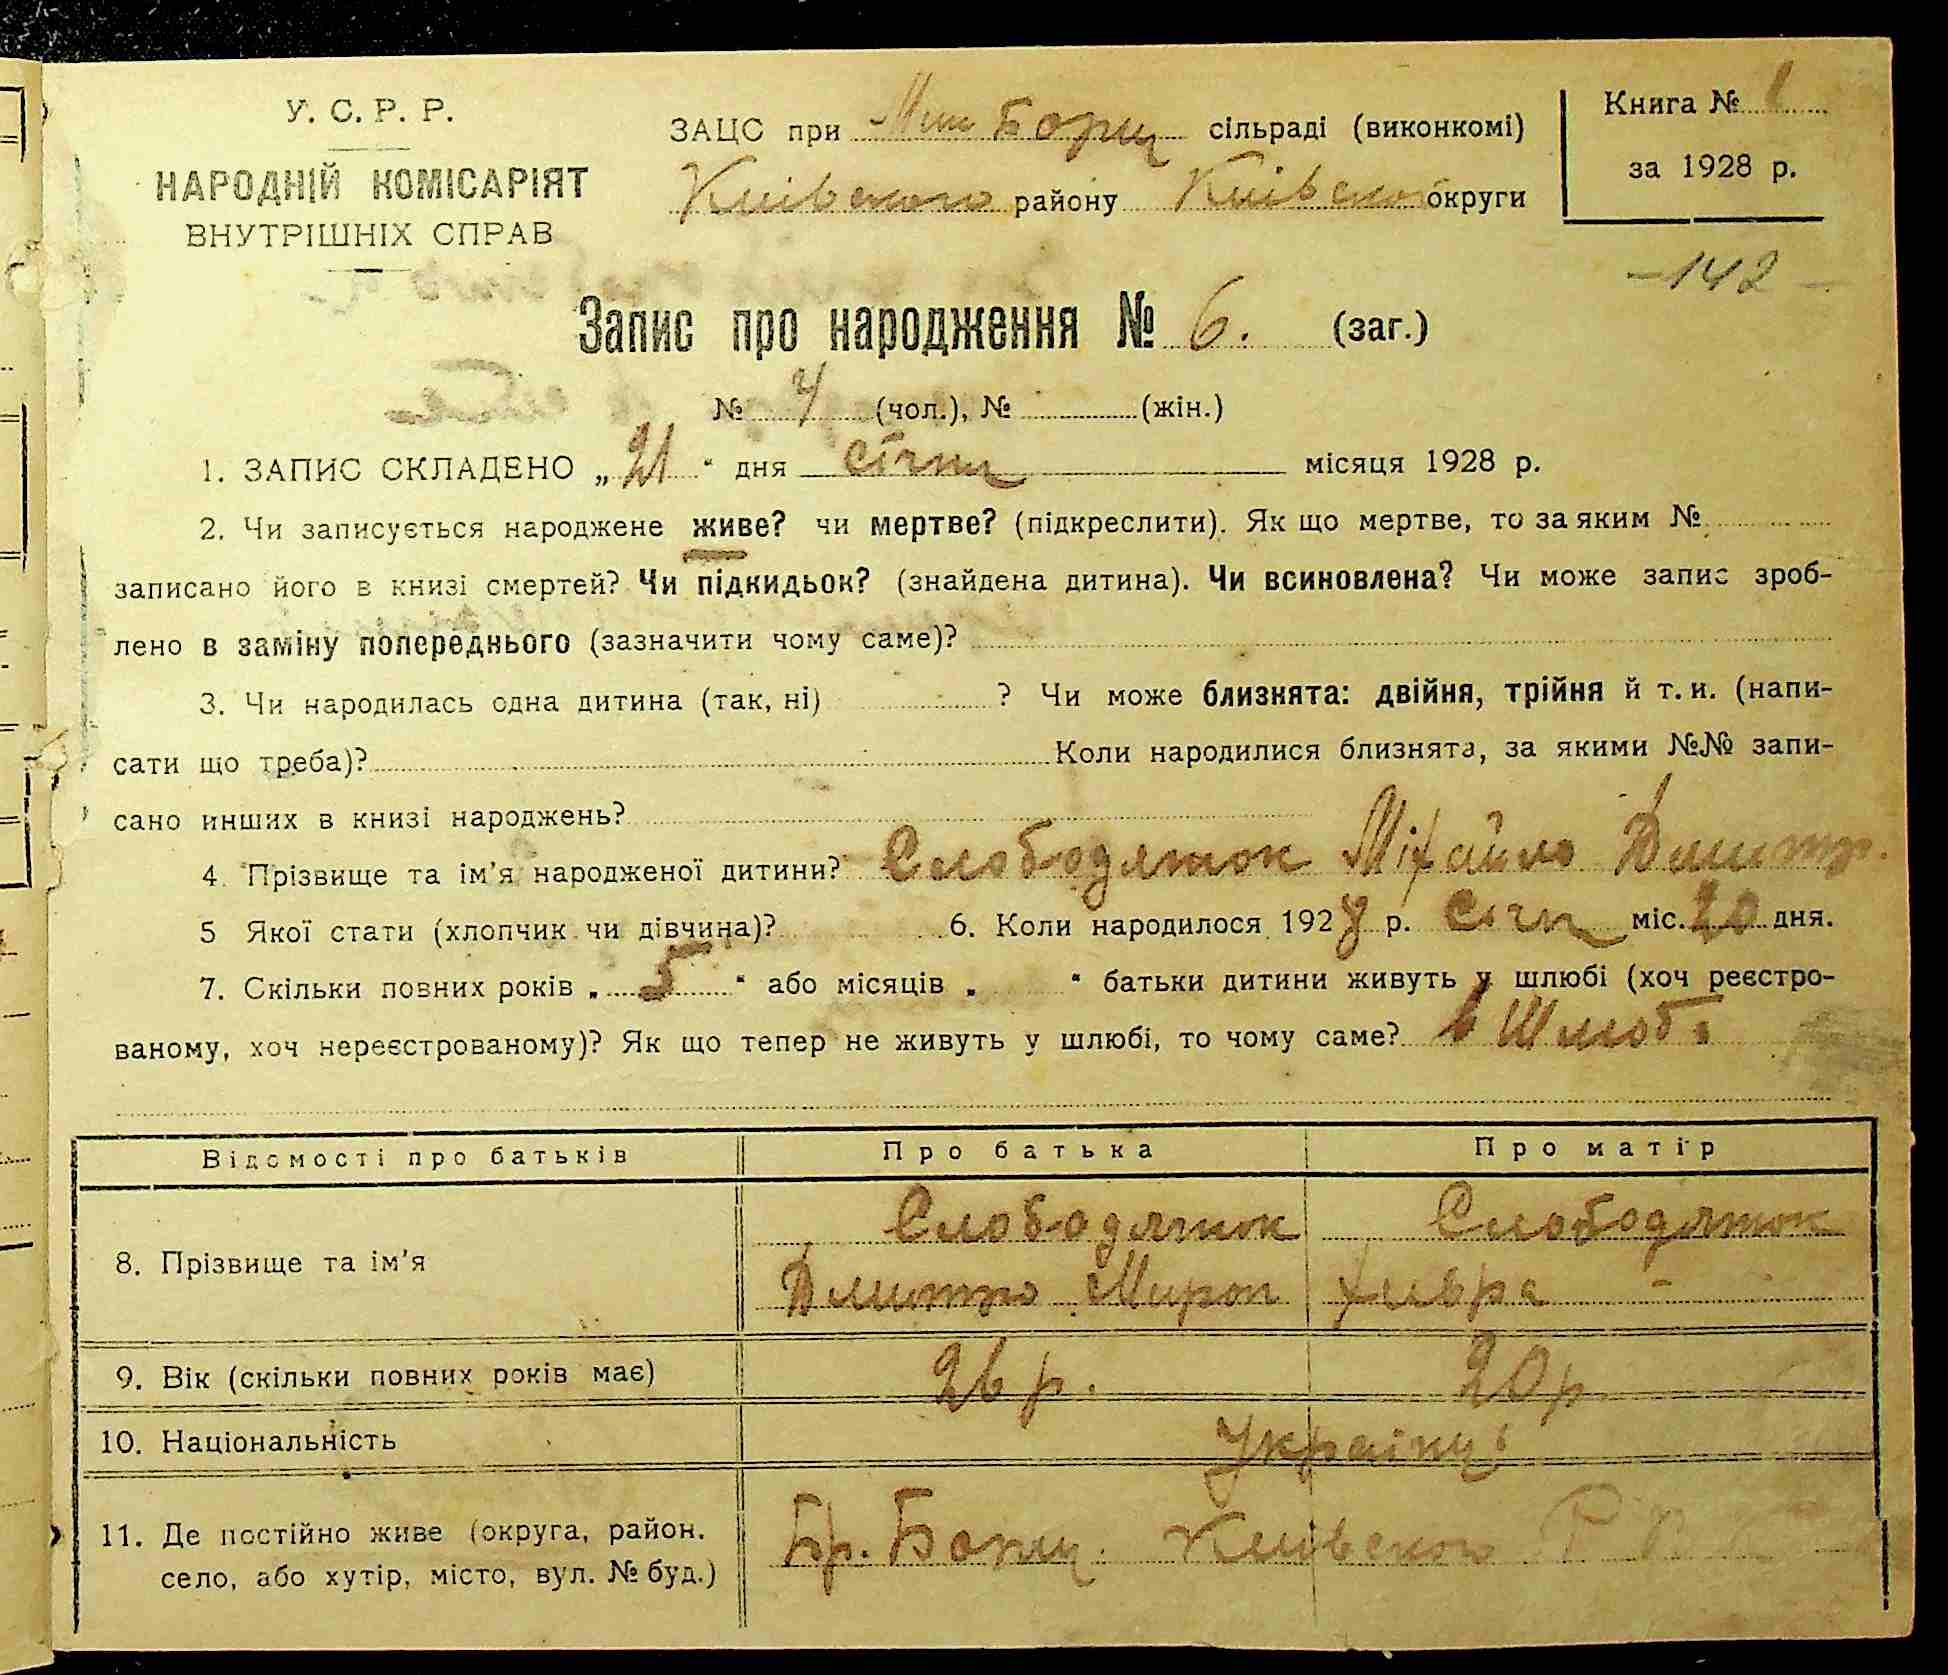 У. С. Р. Р.
НАРОДНІЙ КОМІСАРІЯТ
ВНУТРІШНІХ СПРАВ
ЗАЦС при Мик Борщ сільраді (виконкомі)
Київського району Київської округи
Книга № 1
за 1928 р.
-142-
Запис про народження № 6. (заг.)
№ 4 (чол.), № (жін.)
1. ЗАПИС СКЛАДЕНО „21“ дня Січня місяця 1928 р.
2. Чи записується народжене живе? чи мертве? (підкреслити). Як що мертве, то за яким №
записано його в книзі смертей? Чи підкидьок? (знайдена дитина). Чи всиновлена? Чи може запис зроб-
лено в заміну попереднього (зазначити чому саме)?
3. Чи народилась одна дитина (так, ні) ? Чи може близнята: двійня, трійня й т. и. (напи-
сати що треба)? Коли народилися близнята, за якими №№ запи-
сано инших в книзі народжень?
4. Прізвище та ім'я народженої дитини? Слободянюк Міхайло Дмитр.
5 Якої стати (хлопчик чи дівчина)? 6. Коли народилося 1928 р. Січн міс. 20 дня.
7. Скільки повних років „5“ або місяців „ “ батьки дитини живуть у шлюбі (хоч реєстро-
ваному, хоч нереєстрованому)? Як що тепер не живуть у шлюбі, то чому саме? в Шлюбі
Відомості про батьків Про батька Про матір
8. Прізвище та ім'я Слободянюк Слободянюк
Дмитро Мирон
9. Вік (скільки повних років має) 26 р. 20 р
10. Національність Українці
11. Де постійно живе (округа, район, Бр. Борщ. Київського Р
село, або хутір, місто, вул. № буд.)